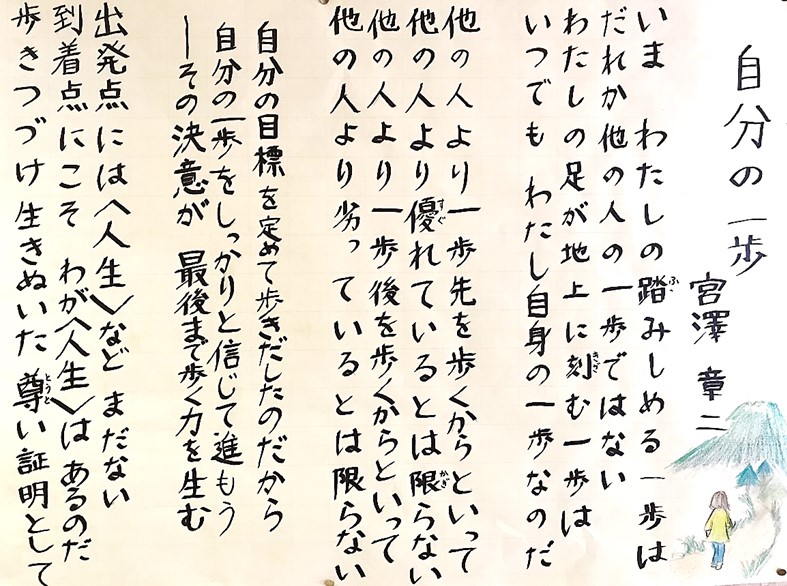 自分の一歩
宮澤 章二
いま わたしの踏みしめる一歩は
だれか他の人の一歩ではない
わたしの足が地上に刻む一歩は
いつでも わたし自身の一歩なのだ
他の人より一歩先を歩くからといって
他の人より優れているとは限らない
他の人より一歩後を歩くからといって
他の人より劣っているとは限らない
自分の目標を定めて歩きだしたのだから
自分の一歩をしっかりと信じて進もう
―その決意が 最後まで歩く力を生む
出発点には〈人生〉など まだない
到着点にこそ わが〈人生〉はあるのだ
歩きつづけ 生きぬいた 尊い証明として